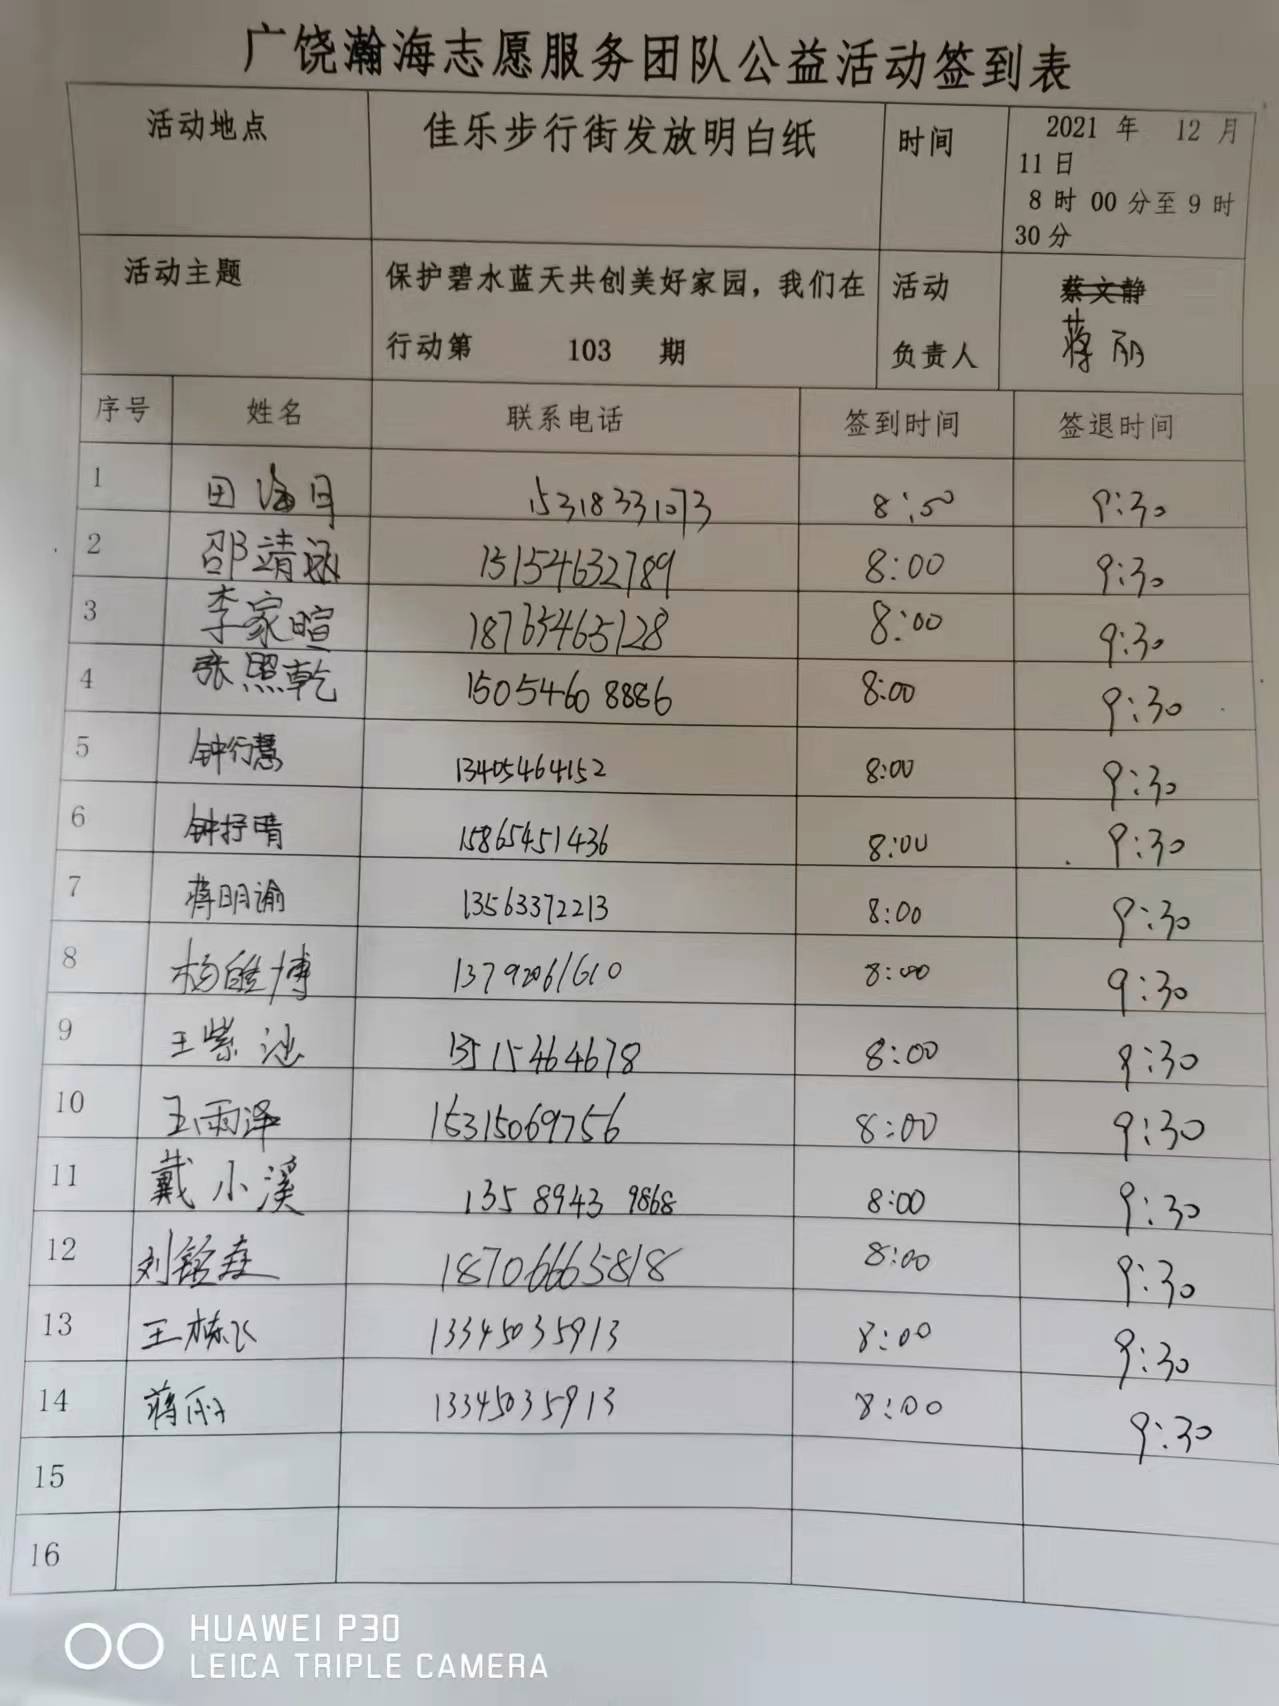 广饶瀚海志愿服务团队公益活动签到表
活动地点 佳乐步行街发放明白纸 时间 2021 年 12 月
11日
8 时 00 分至 9 时
30分
活动主题 保护碧水蓝天共创美好家园，我们在 活动 蔡文静
行动第 103 期 负责人 蒋丽
序号 姓名 联系电话 签到时间 签退时间
1 田海月 15318331073 8:00 9:30
2 邵靖涵 15154632789 8:00 9:30
3 李家暄 18765465128 8:00 9:30
4 张照乾 15054608886 8:00 9:30
5 钟行慧 13405464152 8:00 9:30
6 钟抒晴 15865451436 8:00 9:30
7 蒋明谕 13563372213 8:00 9:30
8 杨皓博 13792061610 8:00 9:30
9 王紫 13515464678 8:00 9:30
10 王雨泽 15315069756 8:00 9:30
11 戴小溪 135 8943 9868 8:00 9:30
12 刘铭 18706665818 8:00 9:30
13 王栋飞 13345035913 8:00 9:30
14 蒋丽 13345035913 8:00 9:30
15
16
HUAWEI P30
LEICA TRIPLE CAMERA